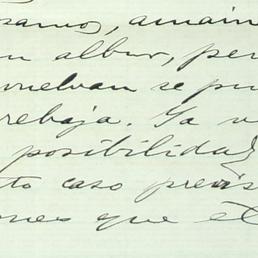 samos, amain
n albur, per
vuelvan se pu
rebaja. Ya v
posibilidad
to caso previs
ones que el